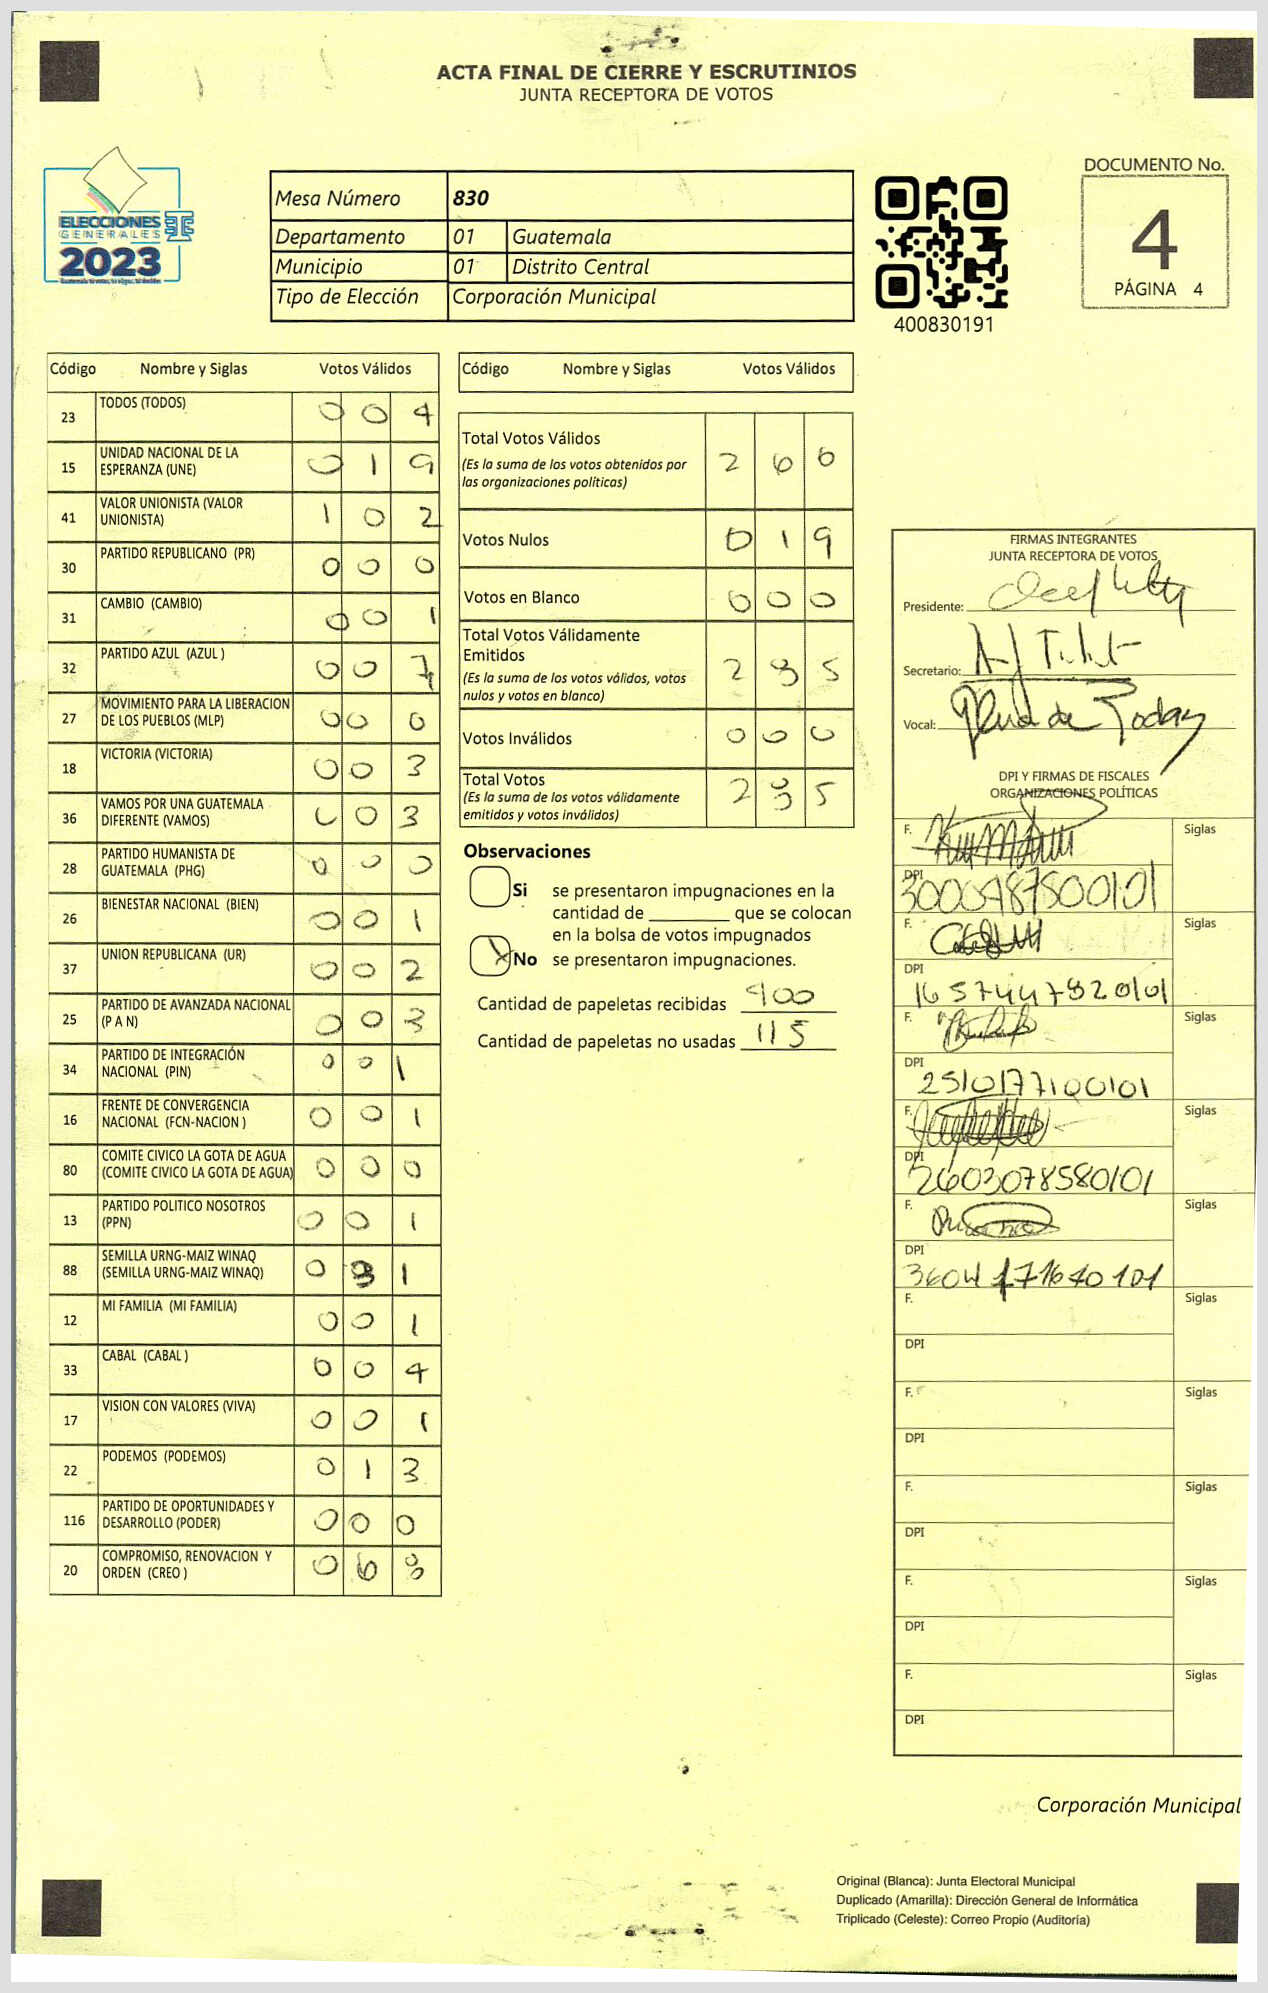 ACTA FINAL DE CIERRE Y ESCRUTINIOS
JUNTA RECEPTORA DE VOTOS
ELECCIONES
GENERALES
2023
Mesa Número 830
Departamento 01 Guatemala
Municipio 01 Distrito Central
Tipo de Elección Corporación Municipal
400830191
DOCUMENTO No.
4
PÁGINA 4
Código Nombre y Siglas Votos Válidos
23 TODOS (TODOS) 0 0 4
15 UNIDAD NACIONAL DE LA
ESPERANZA (UNE) 0 1 9
41 VALOR UNIONISTA (VALOR
UNIONISTA) 1 0 2
30 PARTIDO REPUBLICANO (PR) 0 0 0
31 CAMBIO (CAMBIO) 0 0 1
32 PARTIDO AZUL (AZUL ) 0 0 7
27 MOVIMIENTO PARA LA LIBERACION
DE LOS PUEBLOS (MLP) 0 0 0
18 VICTORIA (VICTORIA) 0 0 3
36 VAMOS POR UNA GUATEMALA
DIFERENTE (VAMOS) 0 0 3
28 PARTIDO HUMANISTA DE
GUATEMALA (PHG) 0 0 0
26 BIENESTAR NACIONAL (BIEN) 0 0 1
37 UNION REPUBLICANA (UR) 0 0 2
25 PARTIDO DE AVANZADA NACIONAL
(P A N) 0 0 3
34 PARTIDO DE INTEGRACIÓN
NACIONAL (PIN) 0 0 1
16 FRENTE DE CONVERGENCIA
NACIONAL (FCN-NACION ) 0 0 1
80 COMITE CIVICO LA GOTA DE AGUA
(COMITE CIVICO LA GOTA DE AGUA) 0 0 0
13 PARTIDO POLITICO NOSOTROS
(PPN) 0 0 1
88 SEMILLA URNG-MAIZ WINAQ
(SEMILLA URNG-MAIZ WINAQ) 0 3 1
12 MI FAMILIA (MI FAMILIA) 0 0 1
33 CABAL (CABAL ) 0 0 4
17 VISION CON VALORES (VIVA) 0 0 1
22 PODEMOS (PODEMOS) 0 1 3
116 PARTIDO DE OPORTUNIDADES Y
DESARROLLO (PODER) 0 0 0
20 COMPROMISO, RENOVACION Y
ORDEN (CREO ) 0 6 8
Código Nombre y Siglas Votos Válidos
Total Votos Válidos 2 6 6
(Es la suma de los votos obtenidos por
las organizaciones políticas)
Votos Nulos 0 1 9
Votos en Blanco 0 0 0
Total Votos Válidamente
Emitidos 2 8 5
(Es la suma de los votos válidos, votos
nulos y votos en blanco)
Votos Inválidos 0 0 0
Total Votos 2 8 5
(Es la suma de los votos válidamente
emitidos y votos inválidos)
Observaciones
Si se presentaron impugnaciones en la
cantidad de ________ que se colocan
en la bolsa de votos impugnados
No se presentaron impugnaciones.
Cantidad de papeletas recibidas 400
Cantidad de papeletas no usadas 115
FIRMAS INTEGRANTES
JUNTA RECEPTORA DE VOTOS
Presidente:
Secretario:
Vocal:
DPI Y FIRMAS DE FISCALES
ORGANIZACIONES POLÍTICAS
F. Siglas
DPI
F. Siglas
DPI
F. Siglas
DPI 2510177100101
F. Siglas
DPI 2603078580101
F. Siglas
DPI
F. Siglas
DPI
F. Siglas
DPI
F. Siglas
DPI
F. Siglas
DPI
F. Siglas
DPI
Corporación Municipal
Original (Blanca): Junta Electoral Municipal
Duplicado (Amarilla): Dirección General de Informática
Triplicado (Celeste): Correo Propio (Auditoría)